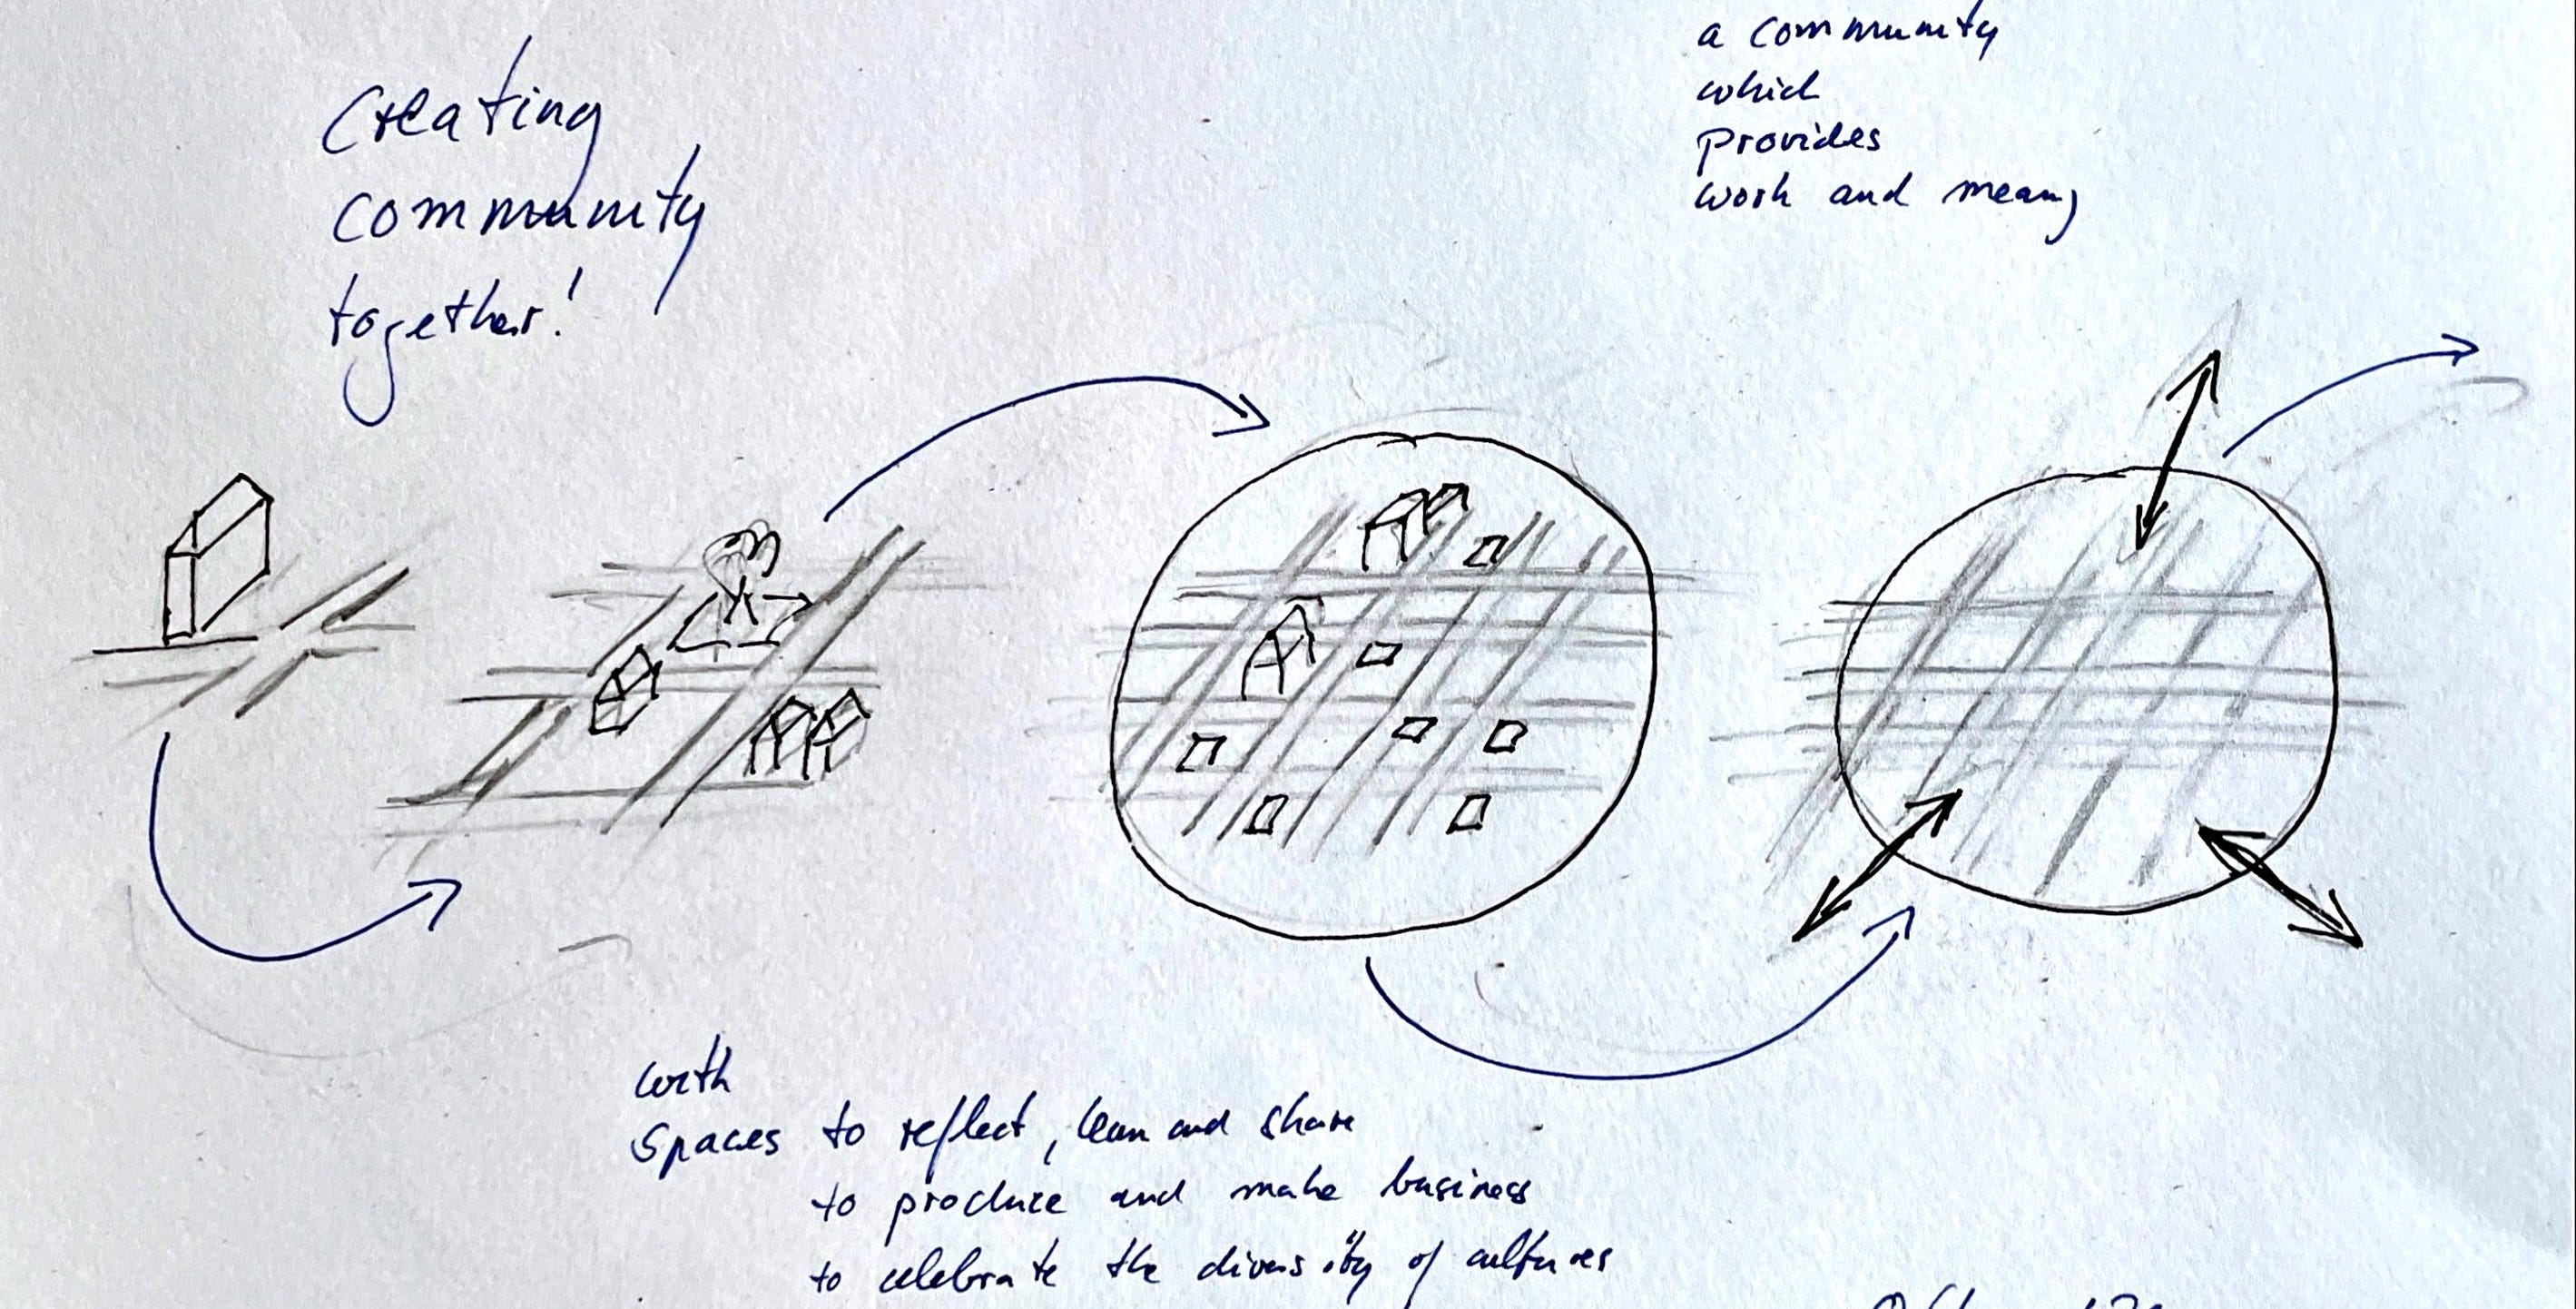 Creating
community
together!
a community
which
provides
work and meaning
with
spaces to reflect, learn and share
to produce and make business
to celebrate the diversity of cultures